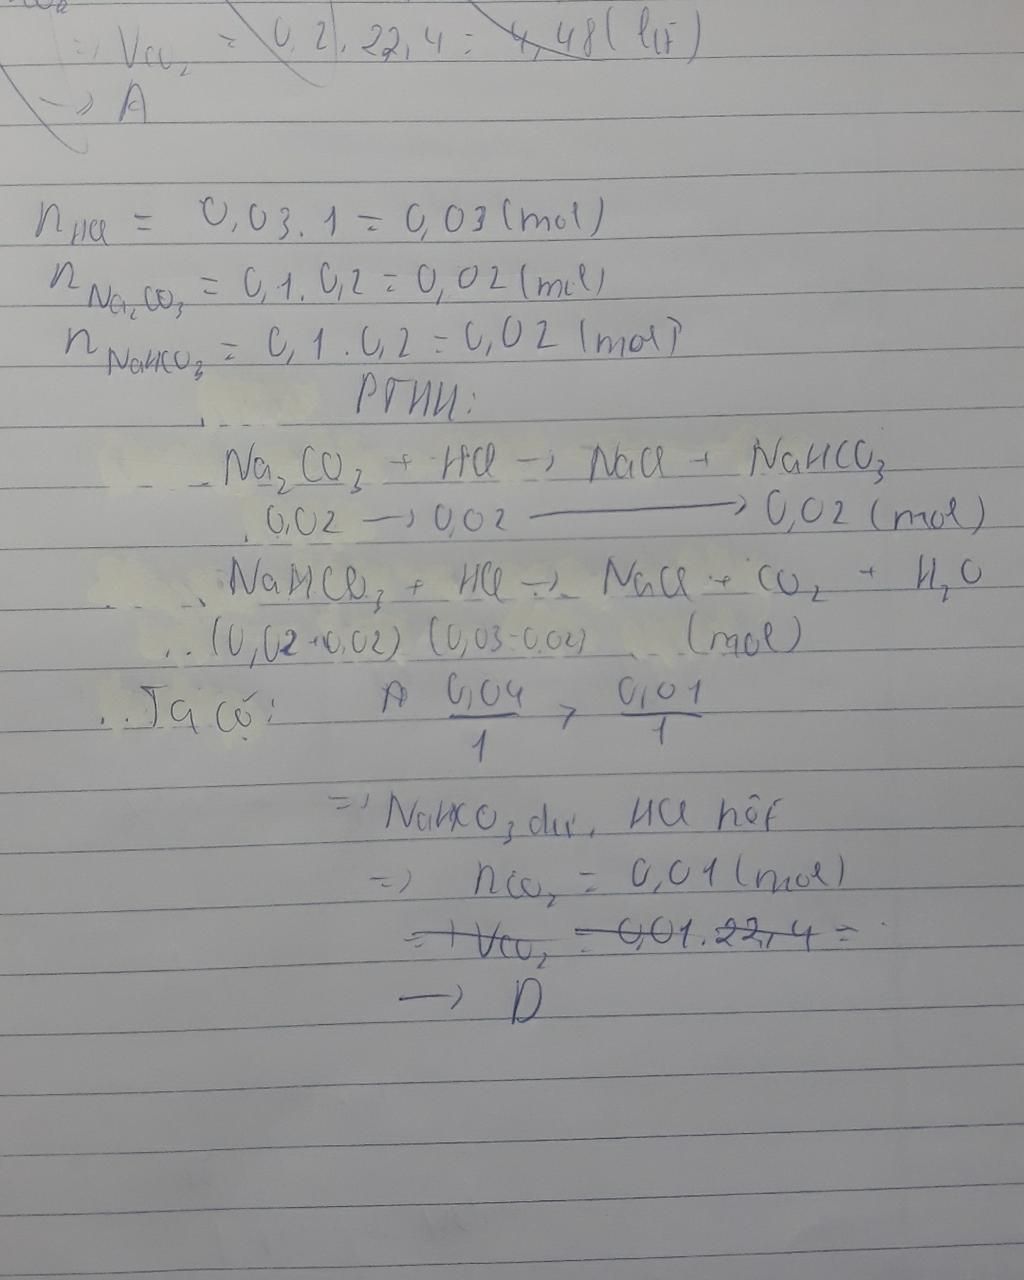 => VCO₂ = 0,2.22,4 = 4,48 (lít)
-> A
nHCl = 0,03.1 = 0,03 (mol)
nNa₂CO₃ = 0,1.0,2 = 0,02 (mol)
nNaHCO₃ = 0,1.0,2 = 0,02 (mol)
PTHH:
Na₂CO₃ + HCl -> NaCl + NaHCO₃
0,02 -> 0,02 -> 0,02 (mol)
NaHCO₃ + HCl -> NaCl + CO₂ + H₂O
(0,02+0,02) (0,03-0,02) (mol)
Ta có: 0,04/1 > 0,01/1
=> NaHCO₃ dư, HCl hết
=> nCO₂ = 0,01 (mol)
=> VCO₂ = 0,01.22,4 =
-> D